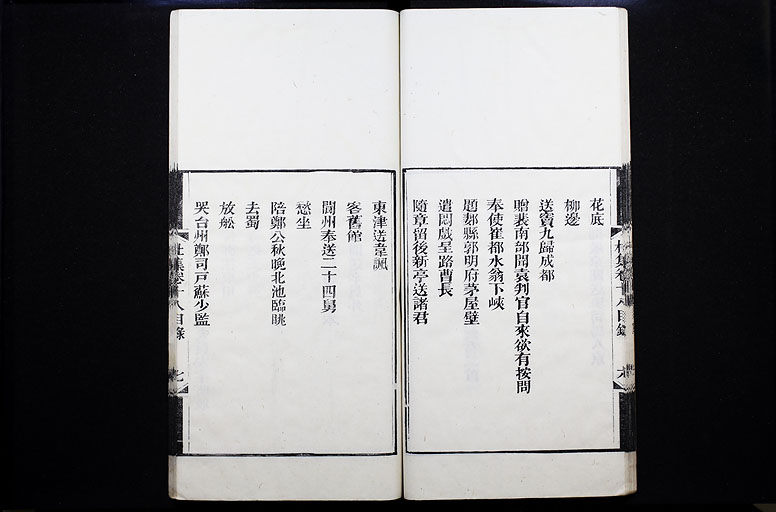 花底
柳邊
送竇九歸成都
贈裴南部聞袁判官自來欲有按問
奉使崔都水翁下峽
題郪縣郭明府茅屋壁
遣悶戲呈路曹長
隨章留後新亭送諸君
杜集卷十八目錄
六
東津送韋諷
客舊館
閬州奉送二十四舅
愁坐
陪鄭公秋晚北池臨眺
去蜀
放船
哭台州鄭司戶蘇少監
杜集卷十八目錄
七